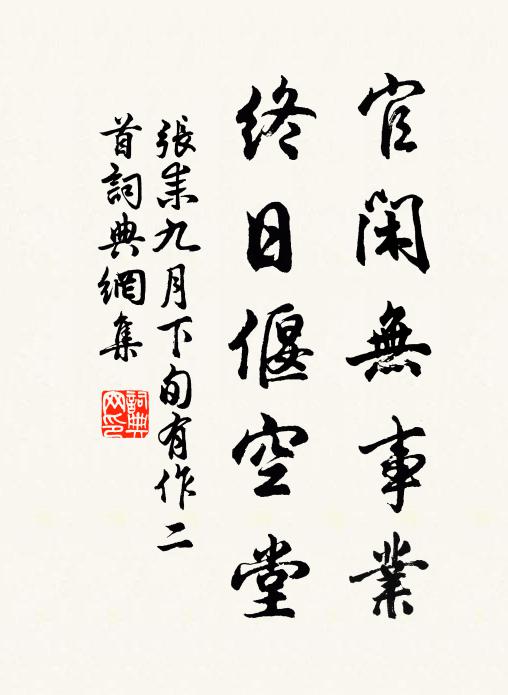 官閑無事業
終日偃空堂
張耒九月下旬有作二
首詞典網集
詞典
网印